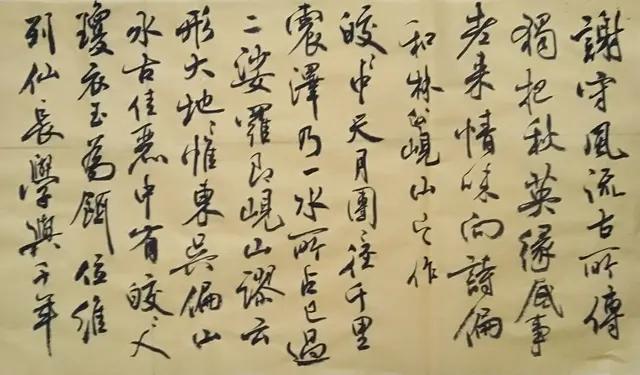 謝守風流古所傳
獨把秋英緣底事
老来情味向詩偏
和林公峴山之作
皎〻中天月團〻徑千里
震澤乃一水所占已過
二娑羅即峴山謬云
形大地〻惟東吳偏山
水古佳麗中有皎〻人
瓊衣玉為餌位維
列仙長學與千年